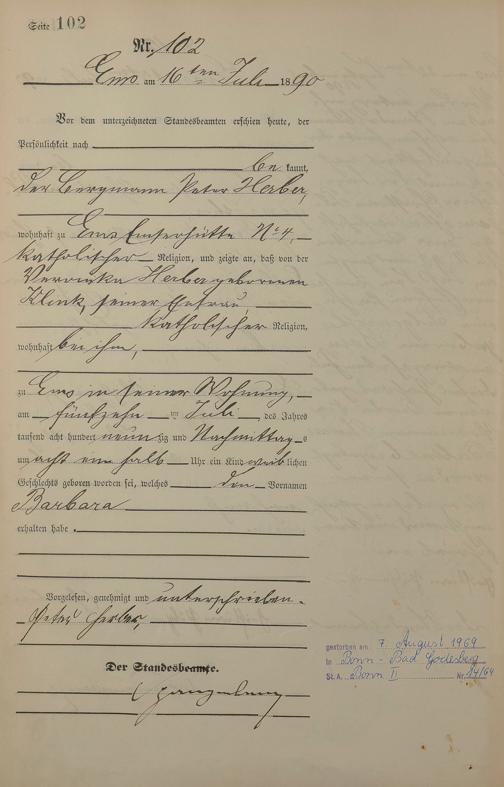 Seite 102
Nr. 102
Ems am 16ten Juli 1890
Vor dem unterzeichneten Standesbeamten erschien heute, der
Persönlichkeit nach
be kannt,
der Bergmann Peter Herber,
wohnhaft zu Ems Emserhütte No 4,
katholischer Religion, und zeigte an, daß von der
Veronika Herber geborenen
Klink, seiner Ehefrau,
katholischer Religion,
wohnhaft bei ihm,
zu Ems in seiner Wohnung,
am fünfzehn ten Juli des Jahres
tausend acht hundert neun zig und Nachmittag s
um acht ein halb Uhr ein Kind weib lichen
Geschlechts geboren worden sei, welches den Vornamen
Barbara
erhalten habe.
Vorgelesen, genehmigt und unterschrieben.
Peter Herber,
Der Standesbeamte.
gestorben am 7. August 1969
in Bonn - Bad Godesberg
St.A. Bonn II Nr.